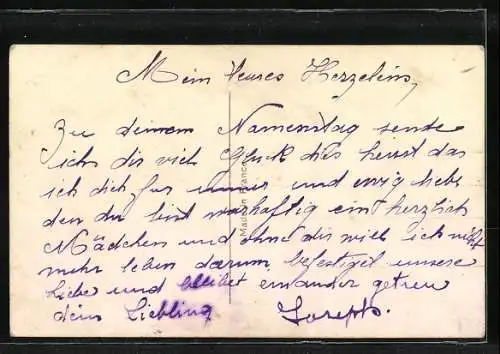 Mein teures Herzeleins,
Zu deinem Namenstag sende
ich dir viel Glück dies heist das
ich dich für immer und ewig liebe
den du bist warhaftig ein herzlich
Mädchen und ohne dir will ich nicht
mehr leben darum befestigel unsere
Liebe und bleibet einander getreu
dein Liebling Joseph.
Made in France